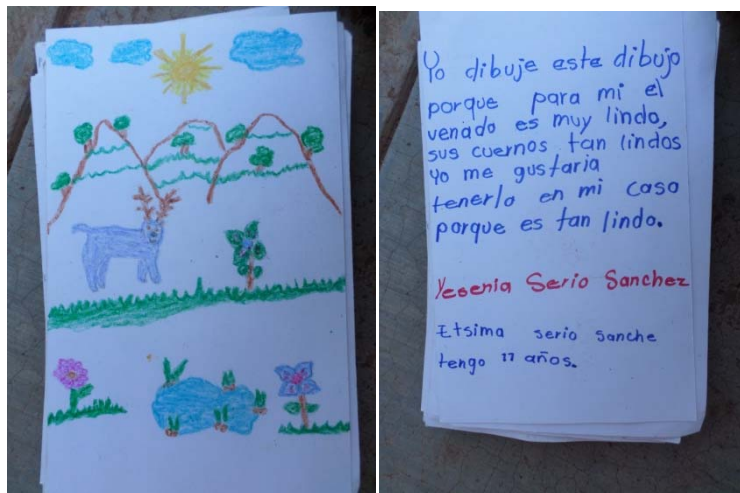 Yo dibuje este dibujo
porque para mi el
venado es muy lindo,
sus cuernos tan lindos
yo me gustaria
tenerlo en mi casa
porque es tan lindo.
Yesenia Serio Sanchez
Etsima serio sanche
tengo 11 años.